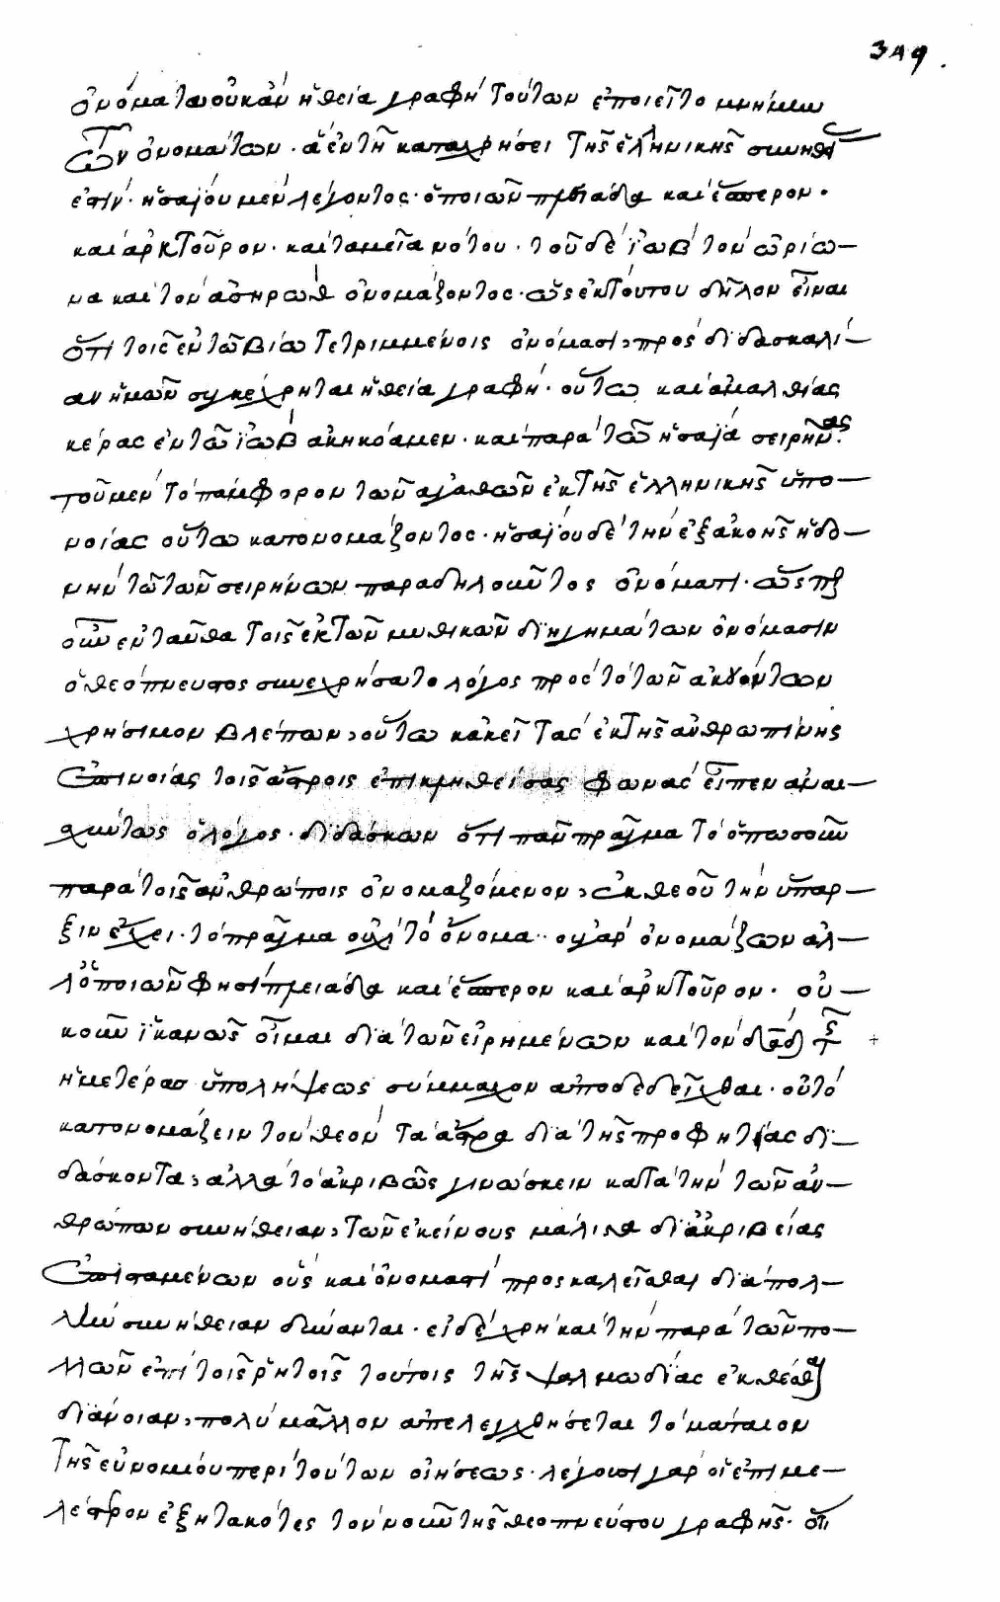 349.
ὀνόματα οὐκ ἂν ἡ θεία γραφὴ τούτων ἐποιεῖτο μνήμην
τῶν ὀνομάτων. ἃ ἐν τῇ καταχρήσει τῆς ἑλληνικῆς συνηθείας
ἐστίν. ἡσαΐου μὲν λέγοντος. ὁ ποιῶν πλειάδα καὶ ἕσπερον.
καὶ ἀρκτοῦρον. καὶ ταμεῖα νότου. τοῦ δὲ ἰὼβ τὸν ὠρίω-
να καὶ τὸν ἀσηρὼθ ὀνομάζοντος. ὡς ἐκ τούτου δῆλον εἶναι
ὅτι τοῖς ἐν τῷ βίῳ τετριμμένοις ὀνόμασι, πρὸς διδασκαλί-
αν ἡμῶν συγκέχρηται ἡ θεία γραφή. οὕτω καὶ ἀμαλθίας
κέρας ἐν τῷ ἰὼβ ἀκηκόαμεν. καὶ παρὰ τῷ ἡσαΐα σειρῆνας.
τοῦ μὲν τὸ πάμφορον τῶν ἀγαθῶν ἐκ τῆς ἑλληνικῆς ὑπο-
νοίας οὕτω κατονομάζοντος. ἡσαΐου δὲ τὴν ἐξ ἀκοῆς ἡδο-
νὴν τῷ τῶν σειρήνων παραδηλοῦντος ὀνόματι. ὥσπερ
οὖν ἐνταῦθα τοῖς ἐκ τῶν μυθικῶν διηγημάτων ὀνόμασιν
ὁ θεόπνευστος συνεχρήσατο λόγος πρὸς τὸ τῶν ἀκουόντων
χρήσιμον βλέπων, οὕτω κἀκεῖ τὰς ἐκ τῆς ἀνθρωπίνης
ἐπινοίας τοῖς ἄστροις ἐπικληθείσας φωνὰς εἶπεν ἀναι-
σχύντως ὁ λόγος. διδάσκων ὅτι πᾶν πρᾶγμα τὸ ὁπωσοῦν
παρὰ τοῖς ἀνθρώποις ὀνομαζόμενον, ἐκ θεοῦ τὴν ὕπαρ-
ξιν ἔχει. τὸ πρᾶγμα οὐχὶ τὸ ὄνομα. οὐ γὰρ ὀνομάζων ἀλ-
λ' ὁ ποιῶν φησὶ πλειάδα καὶ ἕσπερον καὶ ἀρκτοῦρον. οὐ-
κοῦν ἱκανῶς οἶμαι διὰ τῶν εἰρημένων καὶ τὸν δαδ τῆς
ἡμετέρας ὑπολήψεως σύμμαχον ἀποδεδεῖχθαι. οὐ τὸ
κατονομάζειν τὸν θεὸν τὰ ἄστρα διὰ τῆς προφητείας δι-
δάσκοντα, ἀλλὰ τὸ ἀκριβῶς γινώσκειν κατὰ τὴν τῶν ἀν-
θρώπων συνήθειαν, τῶν ἐκείνους μάλιστα δι' ἀκριβείας
ἐπισταμένων οὓς καὶ ὀνομαστὶ προσκαλεῖσθαι διὰ πολ-
λὴν συνήθειαν δύνανται. εἰ δὲ χρὴ καὶ τὴν παρὰ τῶν πο-
λλῶν ἐπὶ τοῖς ῥητοῖς τούτοις τῆς ψαλμωδίας ἐκθέσθαι
διάνοιαν, πολὺ μᾶλλον ἀπελεγχθήσεται τὸ μάταιον
τῆς εὐνομίου περὶ τούτων οἰήσεως. λέγουσι γὰρ οἱ ἐπιμε-
λέστερον ἐξητακότες τὸν νοῦν τῆς θεοπνεύστου γραφῆς. ὅτι